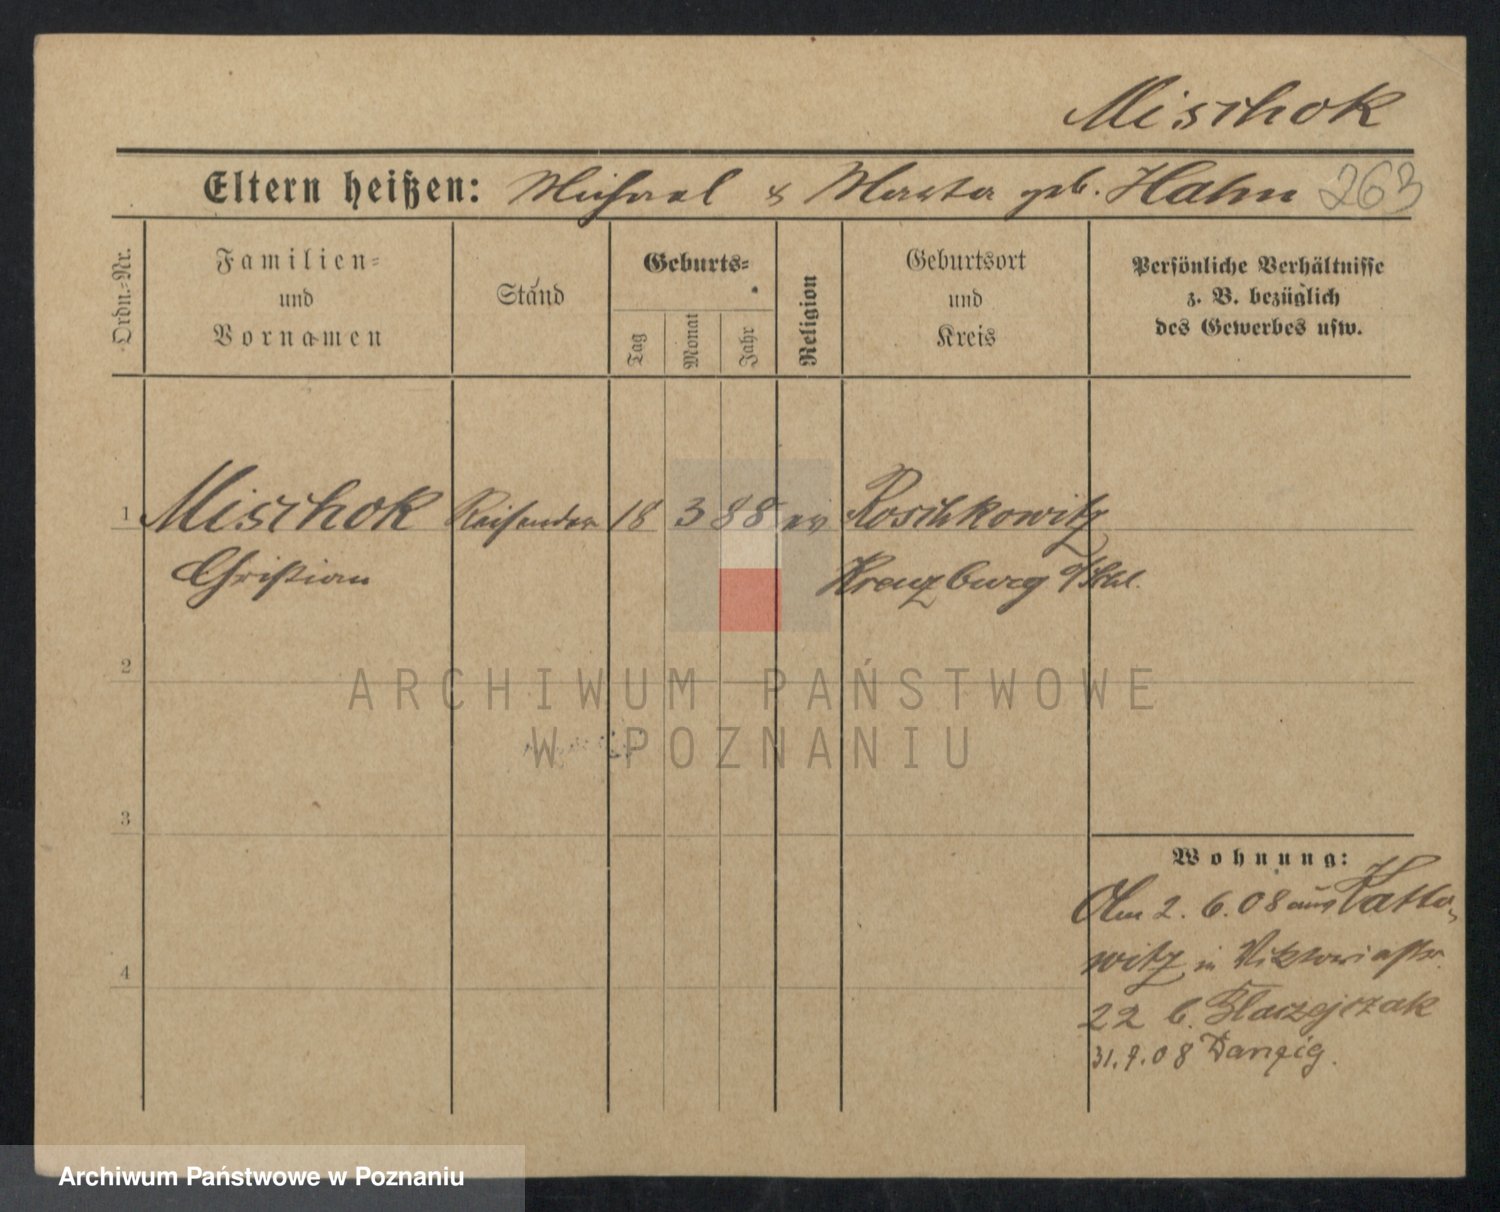 Mischok
Eltern heißen: Michael & Marta geb. Hahn 263
Ordn.-Nr.
Familien-
und
Vornamen
Stand
Geburts-
Tag
Monat
Jahr
Religion
Geburtsort
und
Kreis
Persönliche Verhältnisse
z. B. bezüglich
des Gewerbes usw.
1 Mischok Reisender 18 3 88 ev Roschkowitz
Christian Kreuzburg O/Schl.
2
ARCHIWUM PAŃSTWOWE
W POZNANIU
3
Wohnung:
Am 2. 6. 08 aus Katto-
witz in Viktoriastr.
4
22 b. Blaczejczak
31. 7. 08 Danzig.
Archiwum Państwowe w Poznaniu